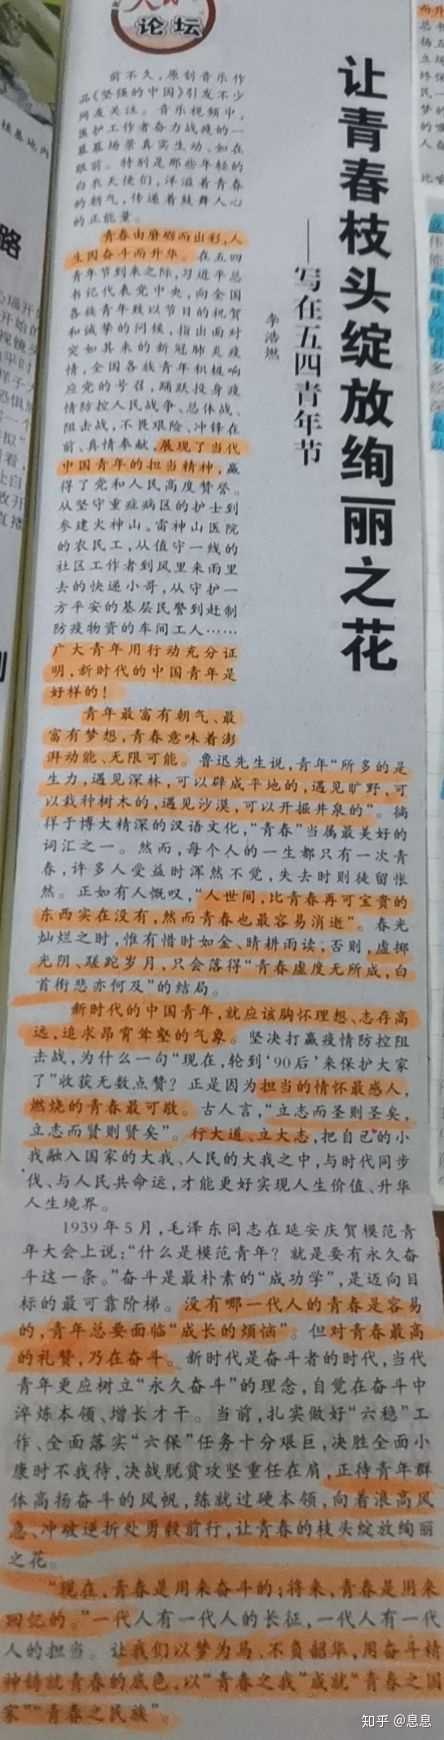 论坛
让青春枝头绽放绚丽之花
——写在五四青年节
李浩燃
前不久，原创音乐作
品《坚强的中国》引发不少
网友关注。音乐视频中，
医护工作者奋力战疫的一
幕幕场景真实生动、如在
眼前。特别是那些年轻的
白衣天使们，洋溢着青春
的朝气，传递着鼓舞人心
的正能量。
青春由磨砺而出彩，人
生因奋斗而升华。在五四
青年节到来之际，习近平总
书记代表党中央，向全国
各族青年致以节日的祝贺
和诚挚的问候，指出面对
突如其来的新冠肺炎疫
情，全国各族青年积极响
应党的号召，踊跃投身疫
情防控人民战争、总体战、
阻击战，不畏艰险、冲锋在
前、真情奉献，展现了当代
中国青年的担当精神，赢
得了党和人民高度赞誉。
从坚守重症病区的护士到
参建火神山、雷神山医院
的农民工，从值守一线的
社区工作者到风里来雨里
去的快递小哥，从守护一
方平安的基层民警到赶制
防疫物资的车间工人……
广大青年用行动充分证
明，新时代的中国青年是
好样的！
青年最富有朝气、最
富有梦想，青春意味着澎
湃动能、无限可能。鲁迅先生说，青年“所多的是
生力，遇见深林，可以辟成平地的，遇见旷野，可
以栽种树木的，遇见沙漠，可以开掘井泉的”。徜
徉于博大精深的汉语文化，“青春”当属最美好的
词汇之一。然而，每个人的一生都只有一次青
春，许多人受益时浑然不觉，失去时则徒留怅
然。正如有人慨叹，“人世间，比青春再可宝贵的
东西实在没有，然而青春也最容易消逝”。春光
灿烂之时，惟有惜时如金、晴耕雨读；否则，虚掷
光阴、蹉跎岁月，只会落得“青春虚度无所成，白
首衔悲亦何及”的结局。
新时代的中国青年，就应该胸怀理想、志存高
远，追求昂霄耸壑的气象。坚决打赢疫情防控阻
击战，为什么一句“现在，轮到‘90后’来保护大家
了”收获无数点赞？正是因为担当的情怀最感人，
燃烧的青春最可敬。古人言，“立志而圣则圣矣，
立志而贤则贤矣”。行大道、立大志，把自己的小
我融入国家的大我、人民的大我之中，与时代同步
伐、与人民共命运，才能更好实现人生价值、升华
人生境界。
1939年5月，毛泽东同志在延安庆贺模范青
年大会上说：“什么是模范青年？就是要有永久奋
斗这一条。”奋斗是最朴素的“成功学”，是迈向目
标的最可靠阶梯。没有哪一代人的青春是容易
的，青年总要面临“成长的烦恼”。但对青春最高
的礼赞，乃在奋斗。新时代是奋斗者的时代，当代
青年更应树立“永久奋斗”的理念，自觉在奋斗中
淬炼本领、增长才干。当前，扎实做好“六稳”工
作、全面落实“六保”任务十分艰巨，决胜全面小
康时不我待，决战脱贫攻坚重任在肩，正待青年群
体高扬奋斗的风帆，练就过硬本领，向着浪高风
急、冲破逆折处勇毅前行，让青春的枝头绽放绚丽
之花。
“现在，青春是用来奋斗的；将来，青春是用来
回忆的。”一代人有一代人的长征，一代人有一代
人的担当。让我们以梦为马、不负韶华，用奋斗精
神铸就青春的底色，以“青春之我”成就“青春之国
家”“青春之民族”。
知乎 @息息